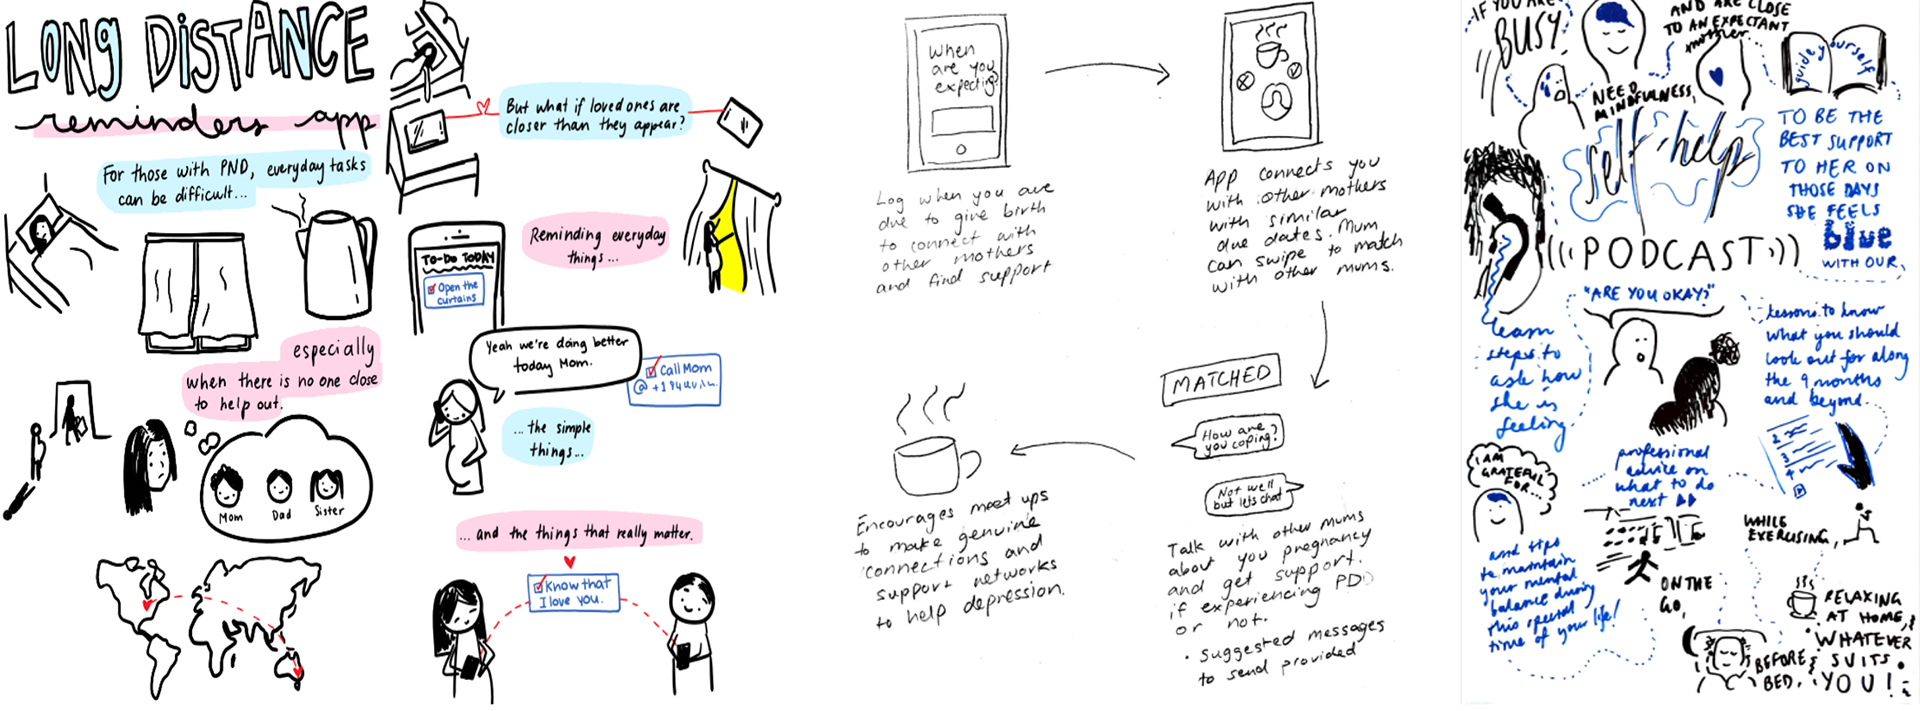 LONG DISTANCE
reminders app
For those with PND, everyday tasks
can be difficult...
especially
when there is no one close
to help out.
Mom Dad Sister
But what if loved ones are
closer than they appear?
Reminding everyday
things...
TO-DO TODAY
Open the
curtains
Yeah we're doing better
today Mom.
Call Mom
@ +1
... the simple
things...
... and the things that really matter.
Know that
I love you.
When
are you
expecting?
Log when you are
due to give birth
to connect with
other mothers
and find support
App connects you
with other mothers
with similar
due dates. Mum
can swipe to match
with other mums.
MATCHED
How are
you coping?
Not well
but lets chat
Talk with other mums
about you pregnancy
and get support.
if experiencing PDD
or not.
• suggested messages
to send provided
Encourages meet ups
to make genuine
connections and
support networks
to help depression.
IF YOU ARE
BUSY
AND ARE CLOSE
TO AN EXPECTANT
mother
NEED
MINDFULNESS,
guide yourself
self-help
PODCAST
TO BE THE
BEST SUPPORT
TO HER ON
THOSE DAYS
SHE FEELS
blue
WITH OUR
"ARE YOU OKAY?"
learn
steps to
ask how
she is
feeling
lessons to know
what you should
look out for along
the 9 months
and beyond.
professional
advice on
what to do
next
I AM
GRATEFUL
FOR...
and tips
to maintain
your mental
balance during
this special
time of your life!
WHILE
EXERCISING,
ON THE
GO,
RELAXING
AT HOME,
BEFORE
BED,
WHATEVER
SUITS
YOU!